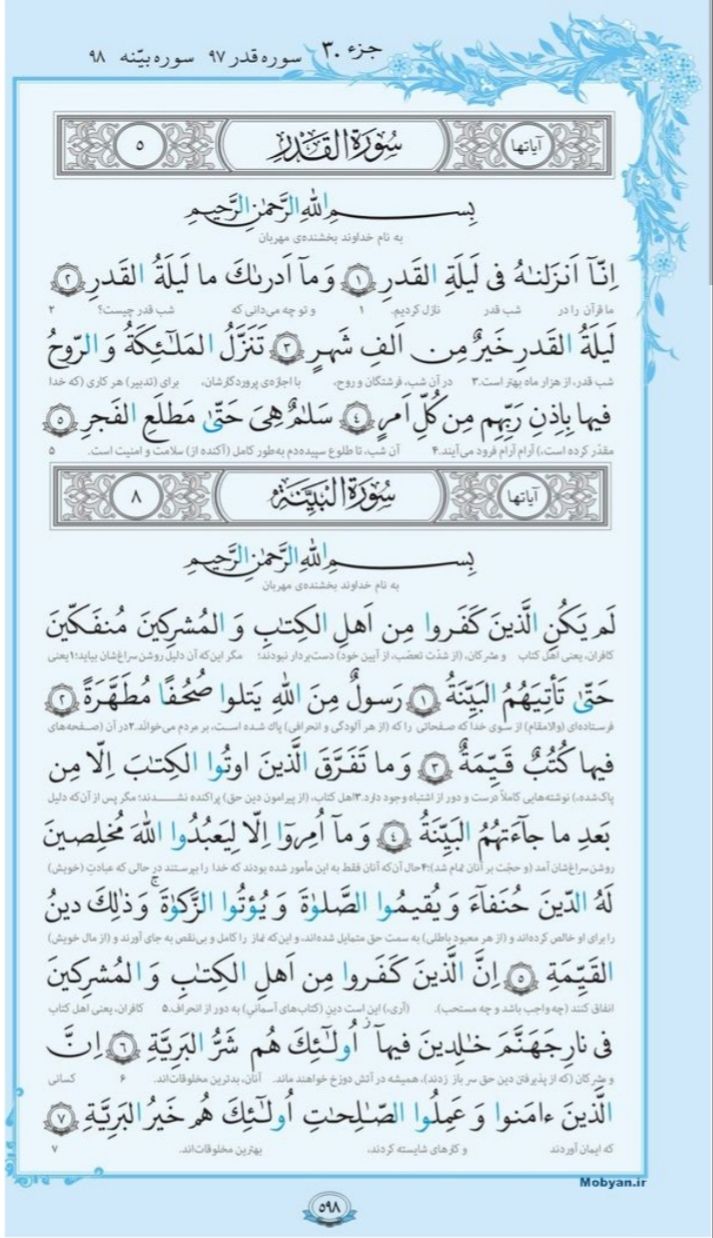 جزء ۳۰ سوره قدر ۹۷ سوره بیّنه ۹۸
آیاتها سُورَةُ القَدْرِ ۵
بِسمِ اللهِ الرَّحمٰنِ الرَّحیمِ
به نام خداوند بخشنده‌ی مهربان
اِنّآ اَنزَلنٰهُ فی لَیلَةِ القَدرِ ۱ وَ مآ اَدرىٰكَ ما لَیلَةُ القَدرِ ۲
ما قرآن را در شب قدر نازل کردیم. ۱ و تو چه می‌دانی که شب قدر چیست؟ ۲
لَیلَةُ القَدرِ خَیرٌ مِن اَلفِ شَهرٍ ۳ تَنَزَّلُ المَلٰٓئِکَةُ وَ الرّوحُ
شب قدر، از هزار ماه بهتر است.۳ در آن شب، فرشتگان و روح، با اجازه‌ی پروردگارشان، برای (تدبیر) هر کاری (که خدا
فیها بِاِذنِ رَبِّهِم مِن کُلِّ اَمرٍ ۴ سَلٰمٌ هِیَ حَتّیٰ مَطلَعِ الفَجرِ ۵
مقدّر کرده است،) آرام آرام فرود می‌آیند.۴ آن شب، تا طلوع سپیده‌دم به‌طور کامل (آکنده از) سلامت و امنیت است. ۵
آیاتها سُورَةُ البَیِّنَةِ ۸
بِسمِ اللهِ الرَّحمٰنِ الرَّحیمِ
به نام خداوند بخشنده‌ی مهربان
لَم یَکُنِ الَّذینَ کَفَروا مِن اَهلِ الکِتٰبِ وَ المُشرِکینَ مُنفَکّینَ
کافران، یعنی اهل کتاب و مشرکان، (از شدّت تعصّب، از آیین خود) دست‌بردار نبودند؛ مگر این‌که آن دلیل روشن سراغ‌شان بیاید؛۱یعنی
حَتّیٰ تَأتِیَهُمُ البَیِّنَةُ ۱ رَسولٌ مِنَ اللهِ یَتلوا صُحُفًا مُطَهَّرَةً ۲
فرستاده‌ای (والامقام) از سوی خدا که صفحاتی را که (از هر آلودگی و انحرافی) پاك شده است، بر مردم می‌خواند.۲در آن (صفحه‌های
فیها کُتُبٌ قَیِّمَةٌ ۳ وَ ما تَفَرَّقَ الَّذینَ اوتُوا الکِتٰبَ اِلّا مِن
پاك‌شده،) نوشته‌هایی کاملاً درست و دور از اشتباه وجود دارد.۳اهل کتاب، (از پیرامون دین حق) پراکنده نشدند؛ مگر پس از آن‌که دلیل
بَعدِ ما جآءَتهُمُ البَیِّنَةُ ۴ وَ مآ اُمِروٓا اِلّا لِیَعبُدُوا اللهَ مُخلِصینَ
روشن سراغ‌شان آمد (و حجّت بر آنان تمام شد)؛۴حال آن‌که آنان فقط به این مأمور شده بودند که خدا را بپرستند در حالی که عبادتِ (خویش)
لَهُ الدّینَ حُنَفآءَ وَ یُقیمُوا الصَّلوٰةَ وَ یُؤتُوا الزَّکوٰةَ ۚ وَ ذٰلِكَ دینُ
را برای او خالص کرده‌اند و (از هر معبود باطلی) به سمت حق متمایل شده‌اند، و این‌که نماز را کامل و بی‌نقص به جای آورند و (از مال خویش)
القَیِّمَةِ ۵ اِنَّ الَّذینَ کَفَروا مِن اَهلِ الکِتٰبِ وَ المُشرِکینَ
انفاق کنند (چه واجب باشد و چه مستحب). (آری،) این است دینِ (کتاب‌های آسمانیِ) به دور از انحراف.۵ کافران، یعنی اهل کتاب
فی نارِ جَهَنَّمَ خٰلِدینَ فیهآ ۚ اُولٰٓئِكَ هُم شَرُّ البَرِیَّةِ ۶ اِنَّ
و مشرکان (که از پذیرفتن دین حق سر باز زدند)، همیشه در آتش دوزخ خواهند ماند. آنان، بدترین مخلوقات‌اند. ۶ کسانی
الَّذینَ ءامَنوا وَ عَمِلُوا الصّٰلِحٰتِ اُولٰٓئِكَ هُم خَیرُ البَرِیَّةِ ۷
که ایمان آوردند و کارهای شایسته کردند، بهترین مخلوقات‌اند. ۷
Mobyan.ir
۵۹۸